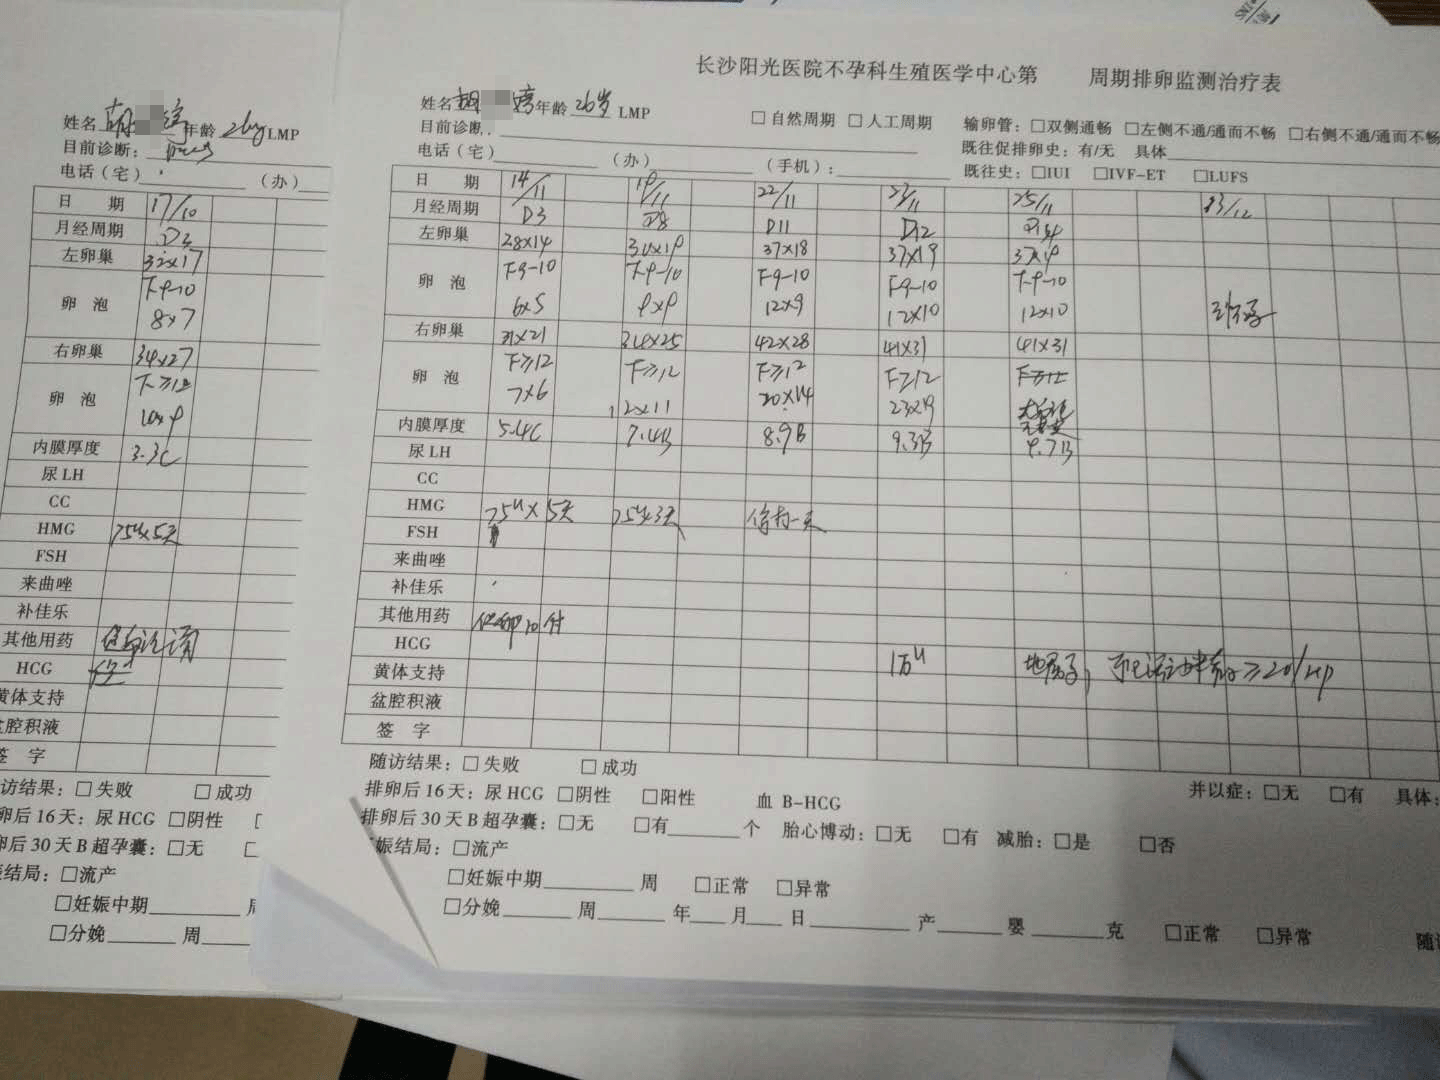 长沙阳光医院不孕科生殖医学中心第 周期排卵监测治疗表
姓名 胡 婷 年龄 26岁 LMP □自然周期 □人工周期 输卵管：□双侧通畅 □左侧不通/通而不畅 □右侧不通/通而不畅
目前诊断： 既往促排卵史：有/无 具体
电话（宅） （办） （手机）： 既往史：□IUI □IVF-ET □LUFS
日 期 14/11 19/11 22/11 23/11 25/11 13/12
月经周期 D3 D8 D11 D12 D14
左卵巢 28×14 30×19 37×18 37×19 37×19
卵 泡 F9-10 F9-10 F9-10 F9-10 F9-10
6×5 9×9 12×9 12×10 12×10
右卵巢 31×21 34×25 42×28 41×31 41×31
卵 泡 F≥12 F≥12 F≥12 F≥12 F≥12
7×6 12×11 20×14 23×19
内膜厚度 5.4C 7.4B 8.9B 9.3B 9.7B
尿LH
CC
HMG 75u×5天 75u×3天
FSH
来曲唑
补佳乐
其他用药 促卵10付
HCG 1万u
黄体支持
盆腔积液
签 字
随访结果：□失败 □成功
排卵后16天：尿HCG □阴性 □阳性 血 B-HCG 并以症：□无 □有 具体：
排卵后30天B超孕囊：□无 □有 个 胎心博动：□无 □有 减胎：□是 □否
娠结局：□流产
□妊娠中期 周 □正常 □异常
□分娩 周 年 月 日 产 婴 克 □正常 □异常 随
姓名 胡 婷 年龄 26岁 LMP
目前诊断：
电话（宅） （办）
日 期 17/10
月经周期 D3
左卵巢 32×17
卵 泡 F9-10
8×7
右卵巢 34×27
卵 泡 F≥12
10×9
内膜厚度 3.3C
尿LH
CC
HMG 75u×5天
FSH
来曲唑
补佳乐
其他用药
HCG
黄体支持
盆腔积液
签 字
访结果：□失败 □成功
卵后16天：尿HCG □阴性
卵后30天B超孕囊：□无
娠结局：□流产
□妊娠中期
□分娩 周